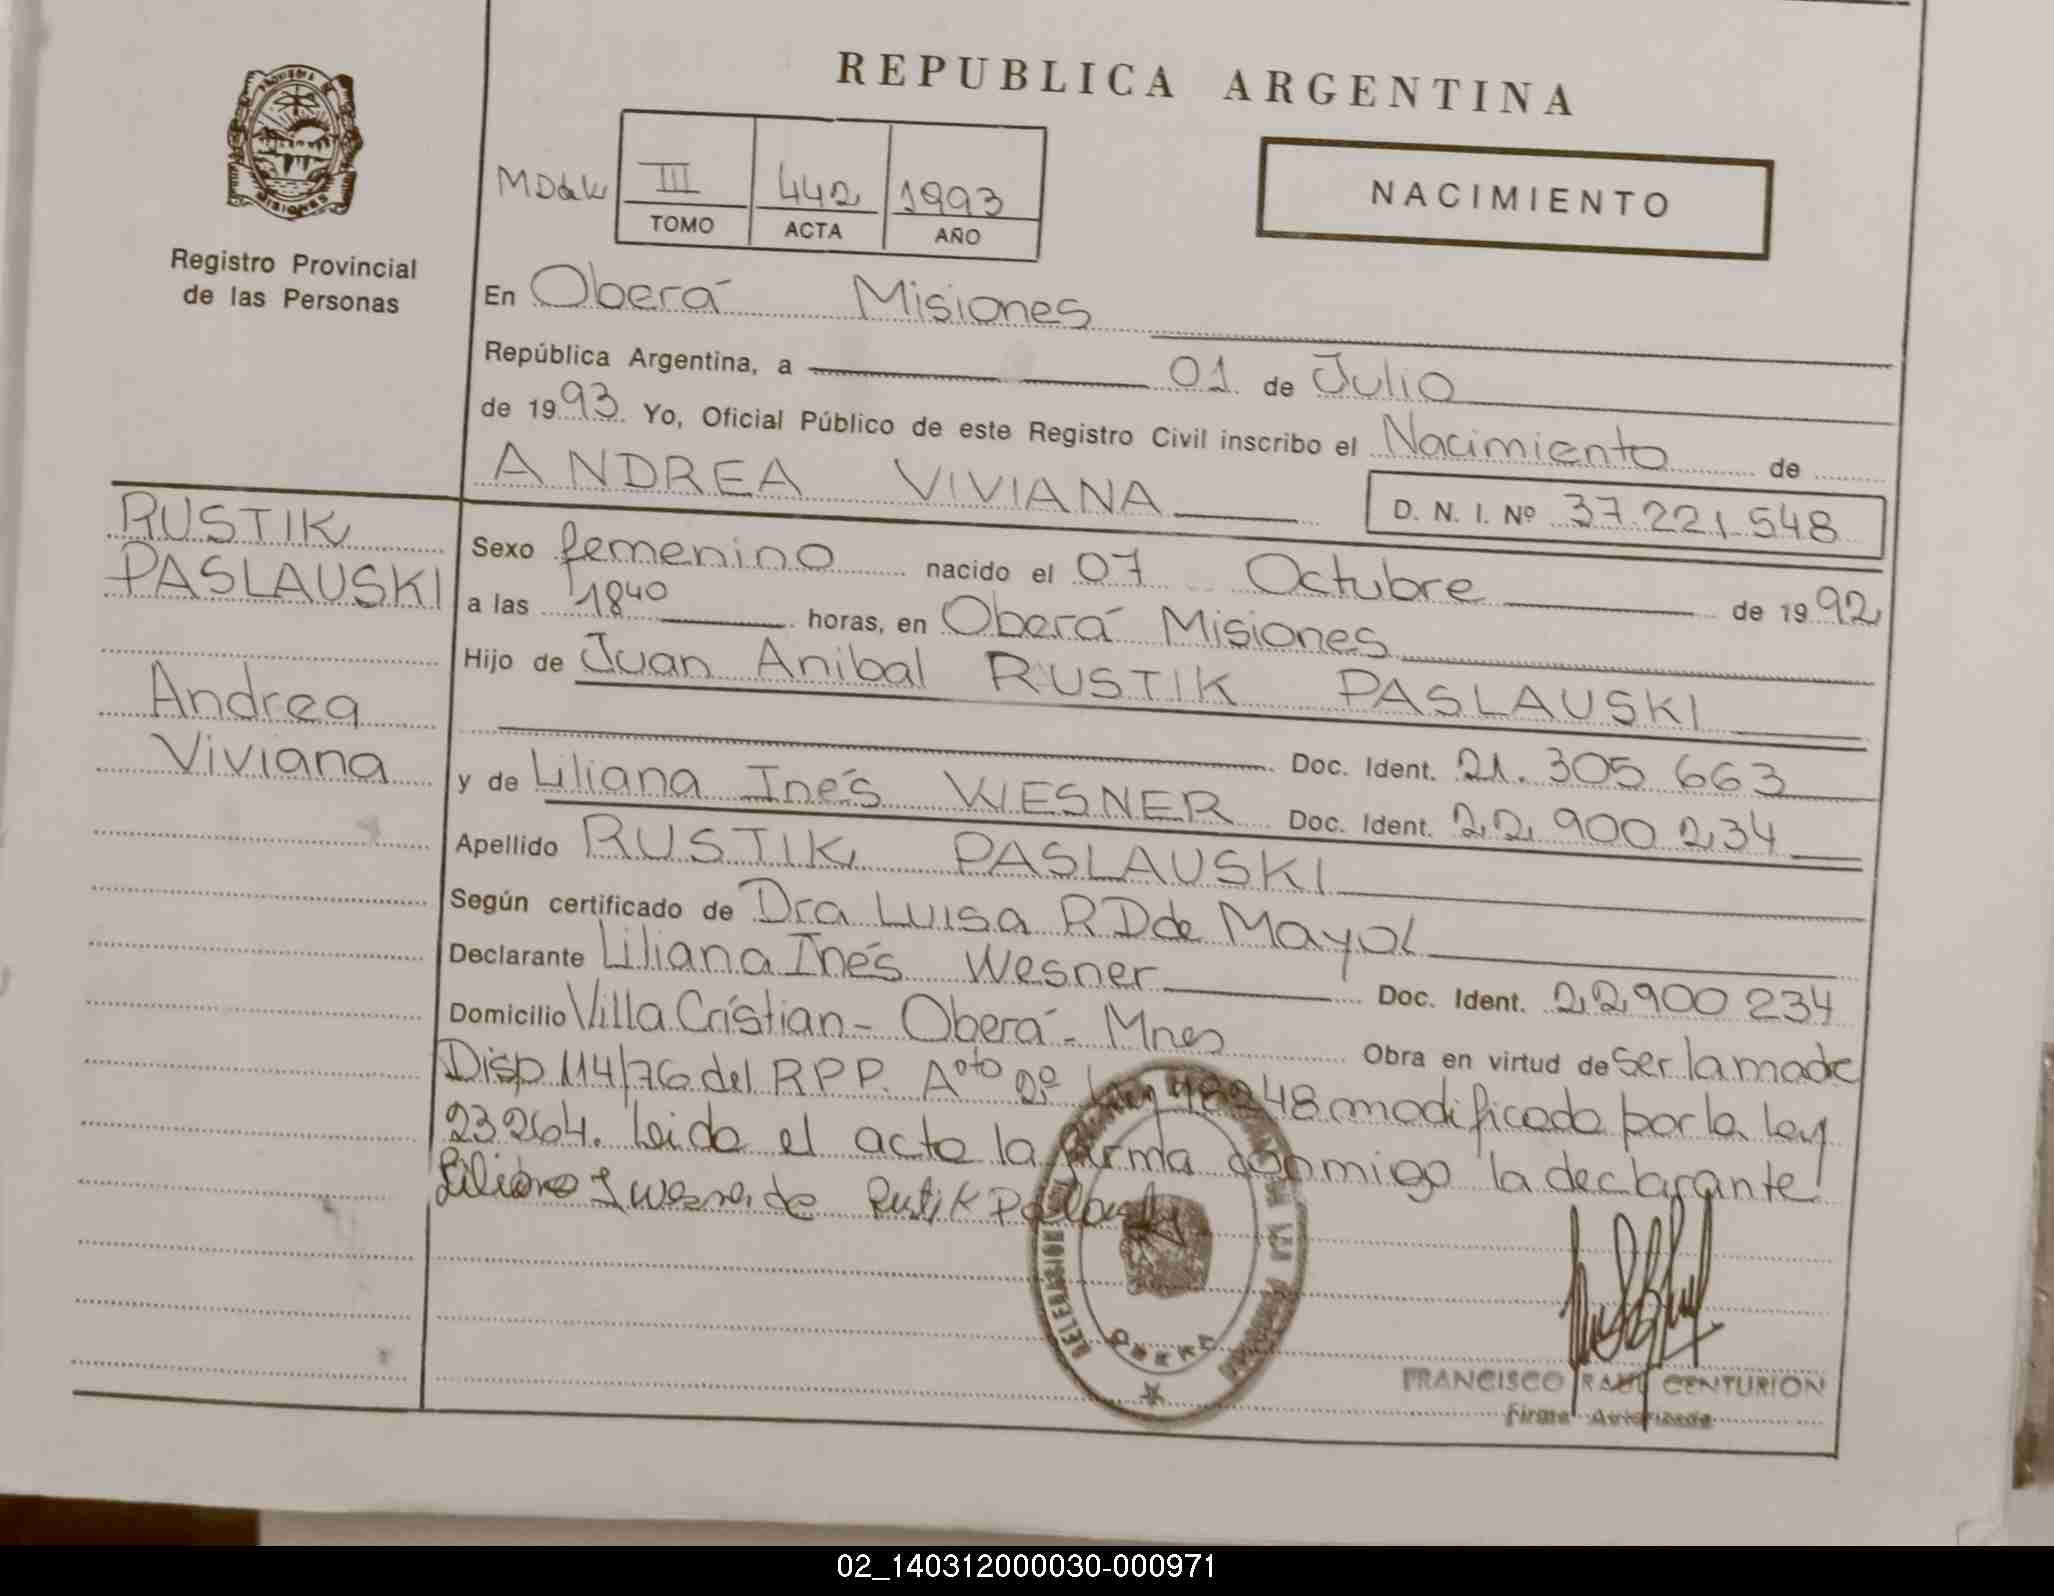 REPUBLICA ARGENTINA
PROVINCIA
MISIONES
Registro Provincial
de las Personas
III 442 1993
TOMO ACTA AÑO
NACIMIENTO
En Oberá Misiones
República Argentina, a 01 de Julio
de 1993 Yo, Oficial Público de este Registro Civil inscribo el Nacimiento de
ANDREA VIVIANA D. N. I. Nº 37.221.548
RUSTIK
PASLAUSKI
Andrea
Viviana
Sexo femenino nacido el 07 Octubre de 1992
a las 18⁴⁰ horas, en Oberá Misiones
Hijo de Juan Anibal RUSTIK PASLAUSKI
Doc. Ident. 21.305.663
y de Liliana Inés WESNER Doc. Ident. 22.900.234
Apellido RUSTIK PASLAUSKI
Según certificado de Dra Luisa R D de Mayol
Declarante Liliana Inés Wesner Doc. Ident. 22.900 234
Domicilio Villa Cristian - Oberá - Mnes Obra en virtud de Ser la madre
Disp 114/76 del R.P.P. 2º Ley 18248 modificado por la ley
23264. Leida el acta la firma conmigo la declarante
FRANCISCO RAUL CENTURION
Firma Autorizada
02_140312000030-000971